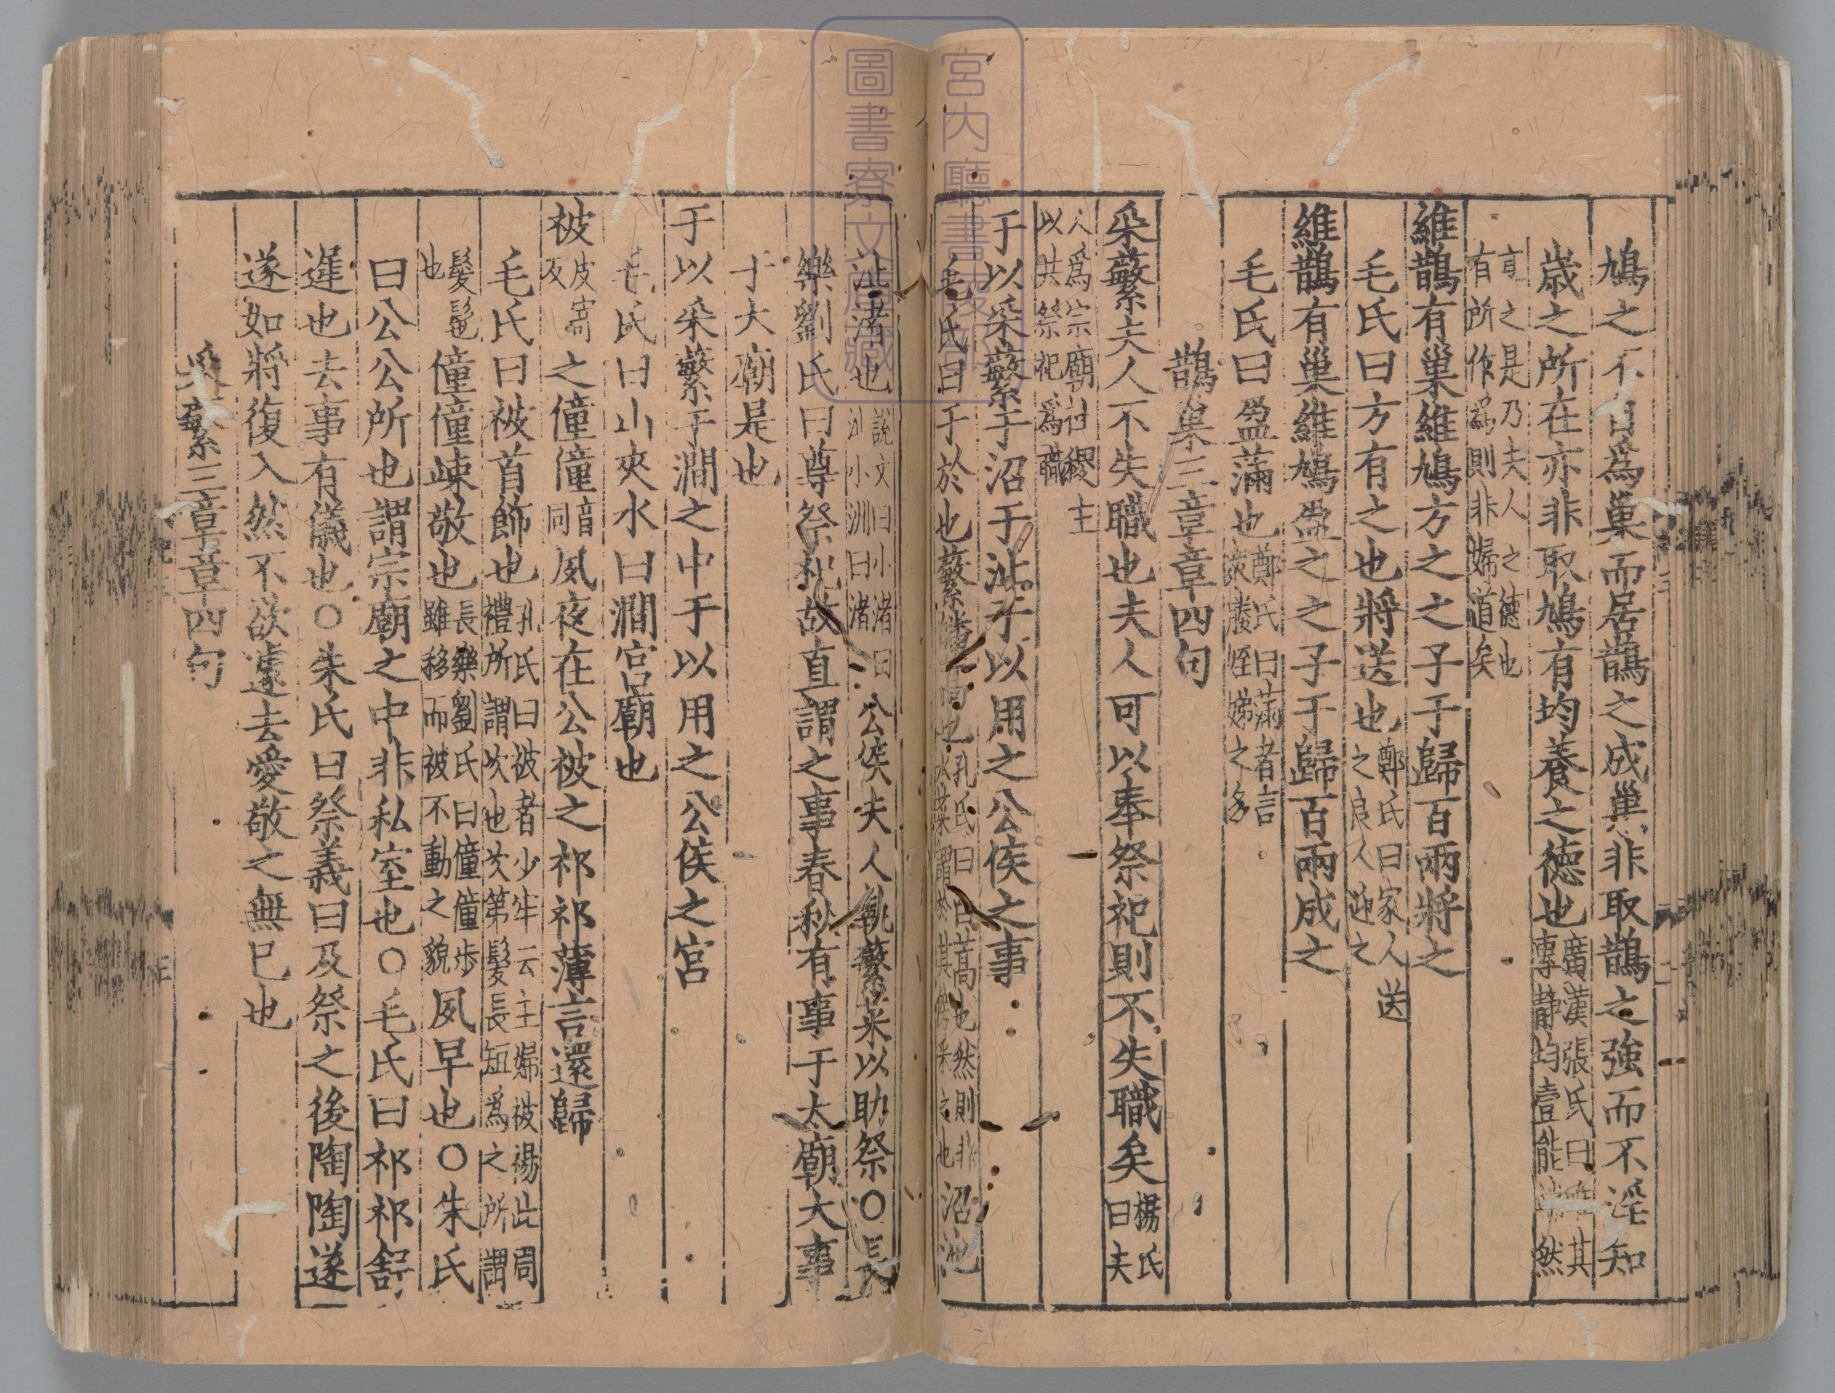 鳩之不自為巢而居鵲之成巢非取鵲之強而不淫知
歲之所在亦非取鳩有均養之德也廣漢張氏曰其專靜均壹能然
享之是乃夫人之德也有所作為則非婦道矣
維鵲有巢維鳩方之之子于歸百兩將之
毛氏曰方有之也將送也鄭氏曰家人送之良人迎之
維鵲有巢維鳩盈之之子于歸百兩成之
毛氏曰盈滿也鄭氏曰滿者言衆媵姪娣之多
鵲巢三章章四句
采蘩夫人不失職也夫人可以奉祭祀則不失職矣楊氏曰夫
人為宗廟社稷主以共祭祀為職
于以采蘩于沼于沚于以用之公侯之事
毛氏曰于於也蘩皤蒿也孔氏曰白蒿也然則非水菜謂於其傍采之也沼池
沚渚也說文曰小渚曰沚小洲曰渚公侯夫人執蘩菜以助祭○長
樂劉氏曰尊祭祀故直謂之事春秋有事于太廟大事
于大廟是也
于以采蘩于澗之中于以用之公侯之宮
毛氏曰山夾水曰澗宮廟也
被皮寄反之僮僮音同夙夜在公被之祁祁薄言還歸
毛氏曰被首飾也孔氏曰被者少牢云主婦被裼此周禮所謂次也次第髮長短為之所謂
髲髢也僮僮竦敬也長樂劉氏曰僮僮步雖移而被不動之貌夙早也○朱氏
曰公公所也謂宗廟之中非私室也○毛氏曰祁祁舒
遲也去事有儀也○朱氏曰祭義曰及祭之後陶陶遂
遂如將復入然不欲遽去愛敬之無已也
采蘩三章章四句
宮內廳書陵部
圖書寮文庫藏